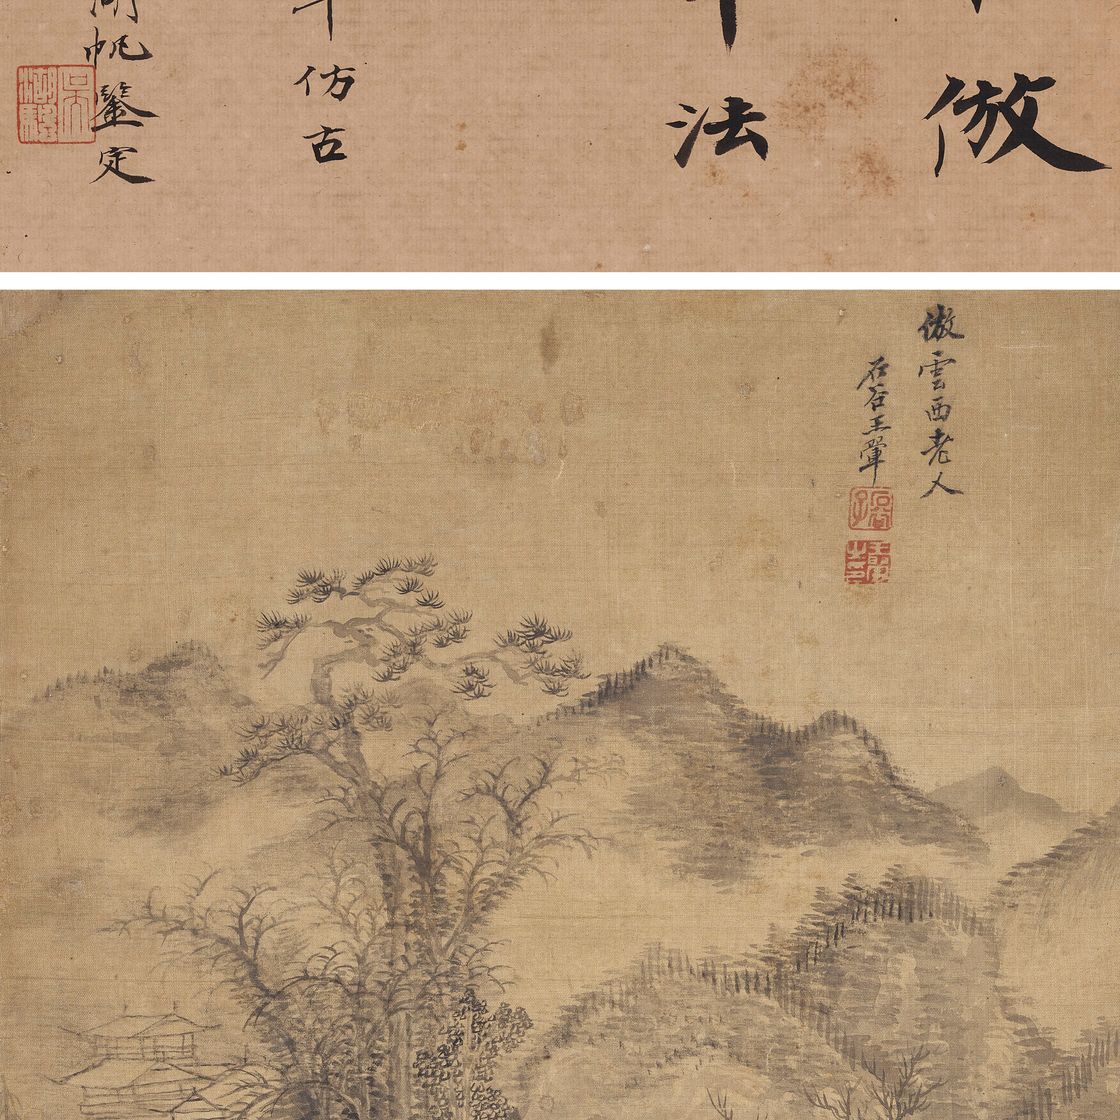 倣
法
仿古
湖帆鑒定
倣雲西老人
石谷王翬